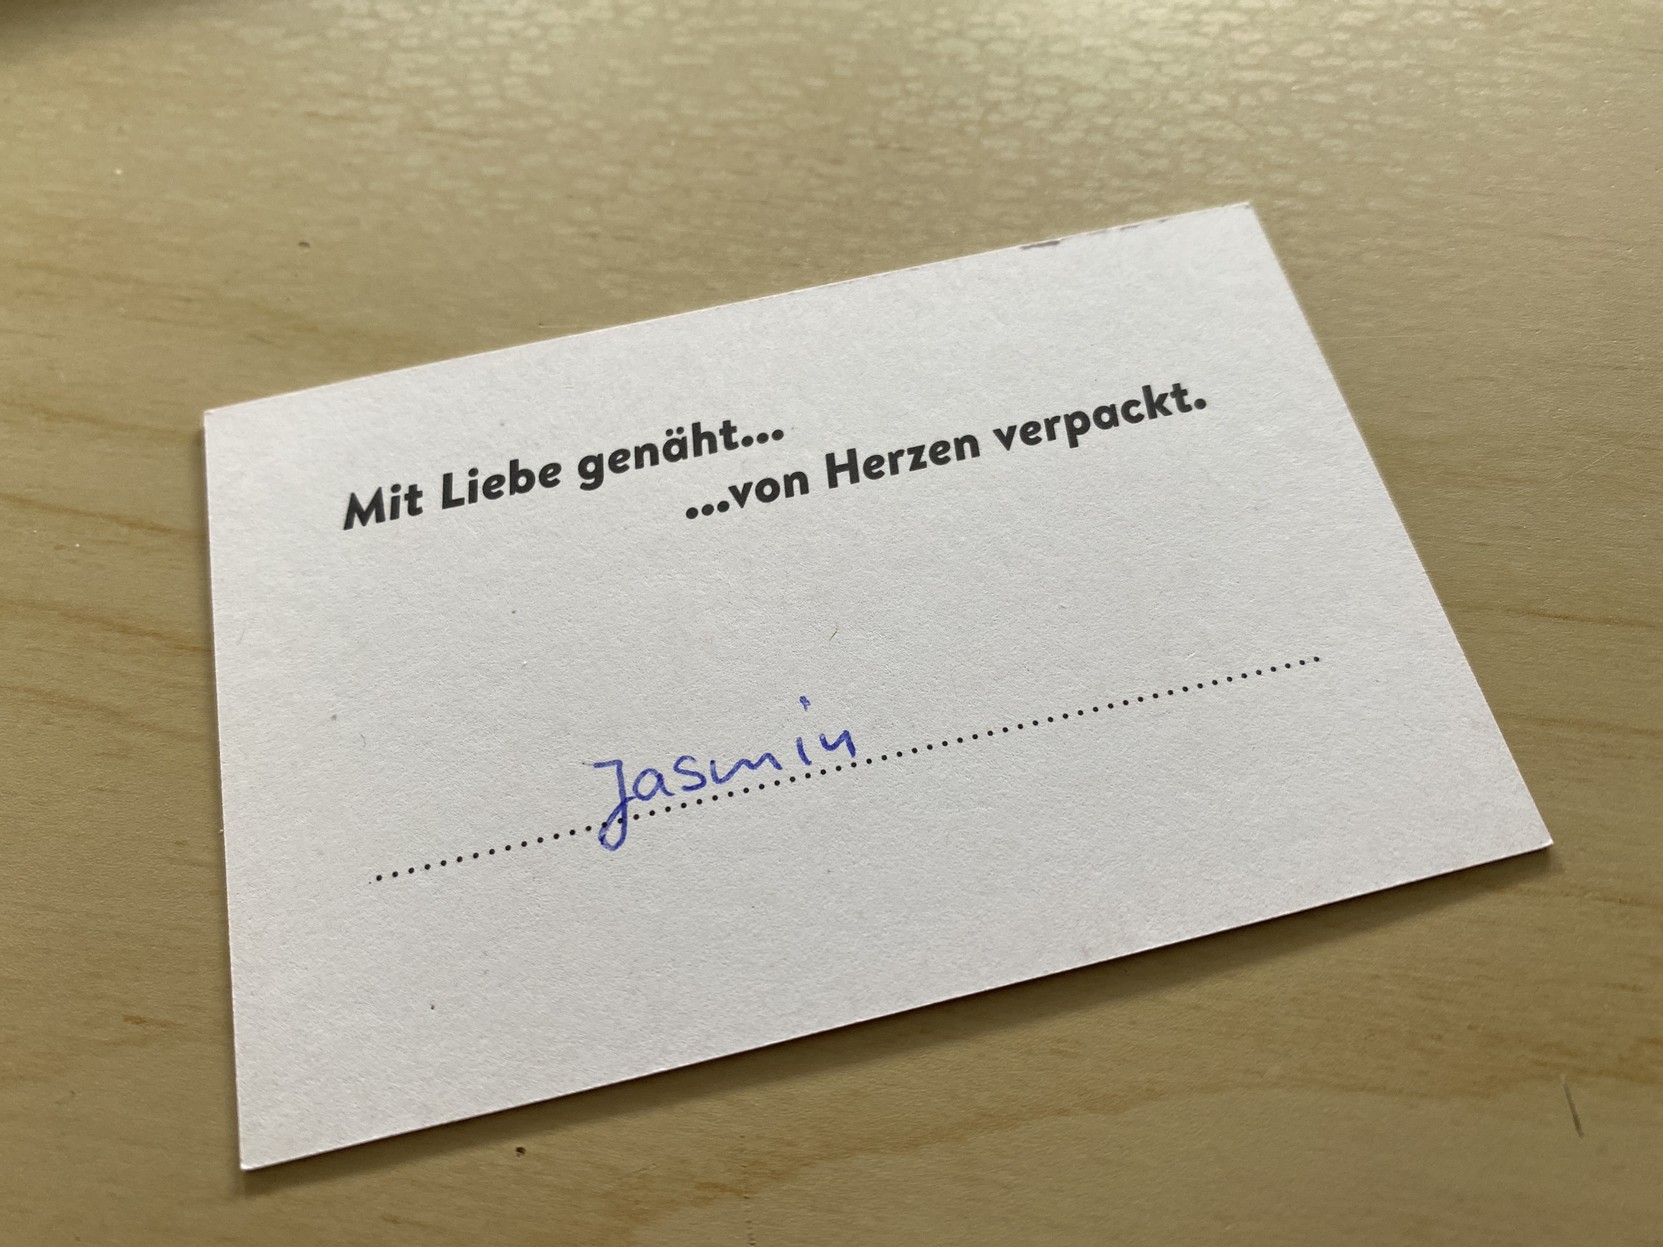 Mit Liebe genäht...
...von Herzen verpackt.
Jasmin